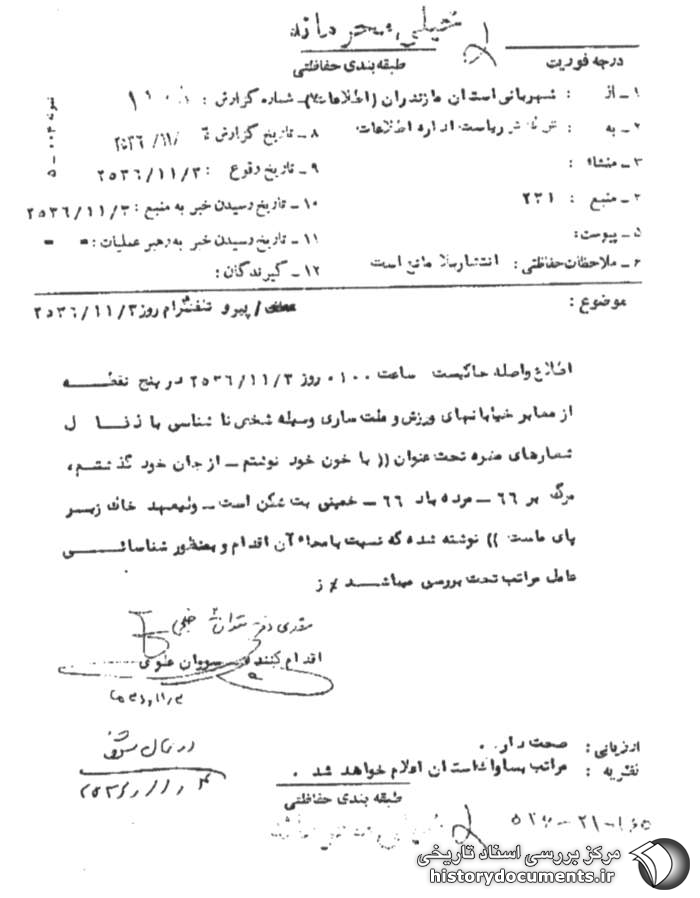 خیلی محرمانه
درجه فوریت
طبقه‌بندی حفاظتی
۱ـ از : شهربانی استان مازندران (اطلاعات)
۲ـ به : ریاست اداره اطلاعات
۳ـ منشاء :
۴ـ منبع : ۲۳۱
۵ـ پیوست:
۶ـ ملاحظات حفاظتی : انتشار بلا مانع است
ـ شماره گزارش :
۸ـ تاریخ گزارش : /۱۱/ ۲۵۳۶
۹ـ تاریخ وقوع : ۲۵۳۶/۱۱/۳
۱۰ـ تاریخ رسیدن خبر به منبع : ۲۵۳۶/۱۱/۳
۱۱ـ تاریخ رسیدن خبر به رهبر عملیات : - -
۱۲ـ گیرندگان :
موضوع : / پیرو تلفنگرام روز ۲۵۳۶/۱۱/۳
اطلاع واصله حاکیست ساعت ۰۱۰۰ روز ۲۵۳۶/۱۱/۳ در پنج نقطه
از معابر خیابانهای ورزش و ملت ساری وسیله شخص نا شناسی با ذغال
شعارهای مضره تحت عنوان (( با خون خود نوشتم ـ از جان خود گذشتم ،
مرگ بر ۶۶ ـ مرده باد ۶۶ ـ خمینی بت شکن است ـ ولیعهد خاک زیر
پای ماست )) نوشته شده که نسبت بامحاء آن اقدام و بمنظور شناسائی
عامل مراتب تحت بررسی میباشد ز
اقدام کننده سروان علوی
ارزیابی : صحت دارد .
نظریه : مراتب بساواک استان اعلام خواهد شد .
طبقه بندی حفاظتی
مرکز بررسی اسناد تاریخی
historydocuments.ir